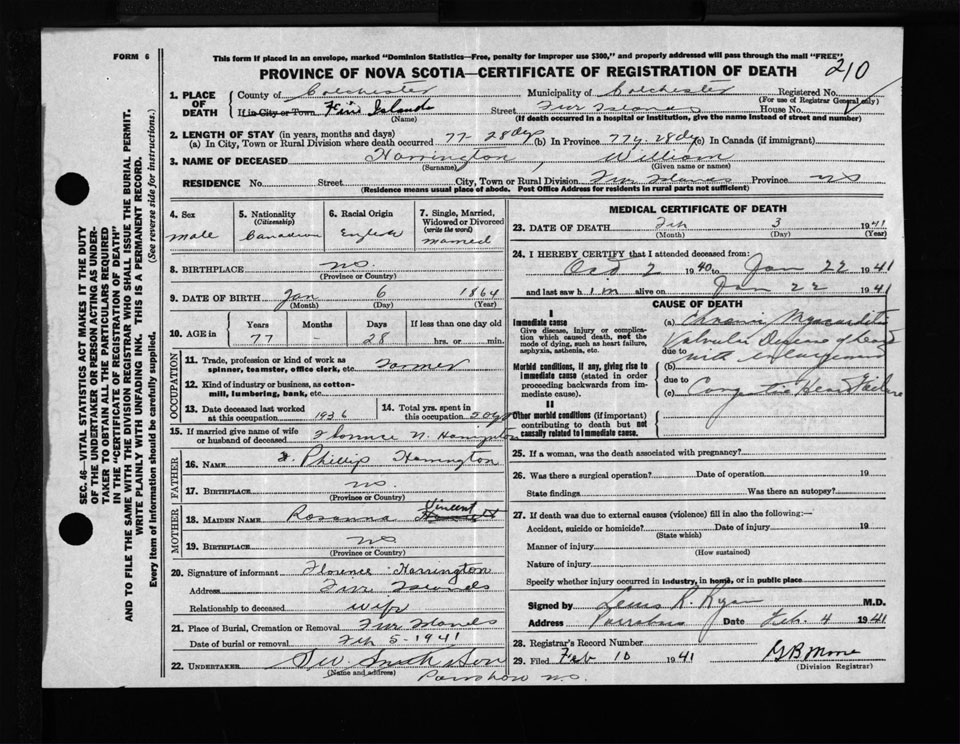 FORM 6
This form if placed in an envelope, marked "Dominion Statistics—Free, penalty for improper use $300," and properly addressed will pass through the mail "FREE"
PROVINCE OF NOVA SCOTIA—CERTIFICATE OF REGISTRATION OF DEATH 210
SEC. 46—VITAL STATISTICS ACT MAKES IT THE DUTY
OF THE UNDERTAKER OR PERSON ACTING AS UNDER-
TAKER TO OBTAIN ALL THE PARTICULARS REQUIRED
IN THE "CERTIFICATE OF REGISTRATION OF DEATH"
AND TO FILE THE SAME WITH THE DIVISION REGISTRAR WHO SHALL ISSUE THE BURIAL PERMIT.
WRITE PLAINLY WITH UNFADING INK. THIS IS A PERMANENT RECORD.
Every item of information should be carefully supplied. (See reverse side for instructions.)
1. PLACE OF DEATH
County of Colchester Municipality of Colchester Registered No.
(For use of Registrar General only)
If in City or Town Five Islands Street Five Islands House No.
(Name) (If death occurred in a hospital or institution, give the name instead of street and number)
2. LENGTH OF STAY (in years, months and days)
(a) In City, Town or Rural Division where death occurred 77 - 28 dys (b) In Province 77 y. 28 dy (c) In Canada (if immigrant)
3. NAME OF DECEASED Harrington William
(Surname) (Given name or names)
RESIDENCE No. Street City, Town or Rural Division Five Islands Province NS
(Residence means usual place of abode. Post Office Address for residents in rural parts not sufficient)
4. Sex
male
5. Nationality
(Citizenship)
Canadian
6. Racial Origin
English
7. Single, Married, Widowed or Divorced
(write the word)
married
8. BIRTHPLACE N.S.
(Province or Country)
9. DATE OF BIRTH Jan 6 1864
(Month) (Day) (Year)
10. AGE in
Years Months Days If less than one day old
77 - 28 hrs. or min.
OCCUPATION
11. Trade, profession or kind of work as
spinner, teamster, office clerk, etc. Farmer
12. Kind of industry or business, as cotton-
mill, lumbering, bank, etc.
13. Date deceased last worked
at this occupation 1936
14. Total yrs. spent in
this occupation
15. If married give name of wife
or husband of deceased Florence N. Harrington
FATHER
16. NAME Phillip Harrington
17. BIRTHPLACE N.S.
(Province or Country)
MOTHER
18. MAIDEN NAME Rosanna Vincent
19. BIRTHPLACE NS
(Province or Country)
20. Signature of informant Florence Harrington
Address Five Islands
Relationship to deceased wife
21. Place of Burial, Cremation or Removal Five Islands
Date of burial or removal Feb 5 - 1941
22. UNDERTAKER Smith & Son
(Name and address)
Parrsboro N.S.
MEDICAL CERTIFICATE OF DEATH
23. DATE OF DEATH Feb 3 1941
(Month) (Day) (Year)
24. I HEREBY CERTIFY that I attended deceased from:
2 1940 to Jan 22 1941
and last saw him alive on Jan 22 1941
CAUSE OF DEATH
I
Immediate cause
Give disease, injury or complica-
tion which caused death, not the
mode of dying, such as heart failure,
asphyxia, asthenia, etc.
(a) Chronic Myocarditis
Valvular Disease of heart
due to with enlargement
Morbid conditions, if any, giving rise to
immediate cause (stated in order
proceeding backwards from im-
mediate cause).
(b)
due to
(c) Congestive Heart Failure
II
Other morbid conditions (if important)
contributing to death but not
causally related to immediate cause.
25. If a woman, was the death associated with pregnancy?
26. Was there a surgical operation? Date of operation 19
State findings Was there an autopsy?
27. If death was due to external causes (violence) fill in also the following:—
Accident, suicide or homicide? Date of injury 19
(State which)
Manner of injury
(How sustained)
Nature of injury
Specify whether injury occurred in industry, in home, or in public place
Signed by Lewis R. Ryan M.D.
Address Parrsboro Date Feb. 4 1941
28. Registrar's Record Number
29. Filed Feb 10 1941 G B Moore
(Division Registrar)